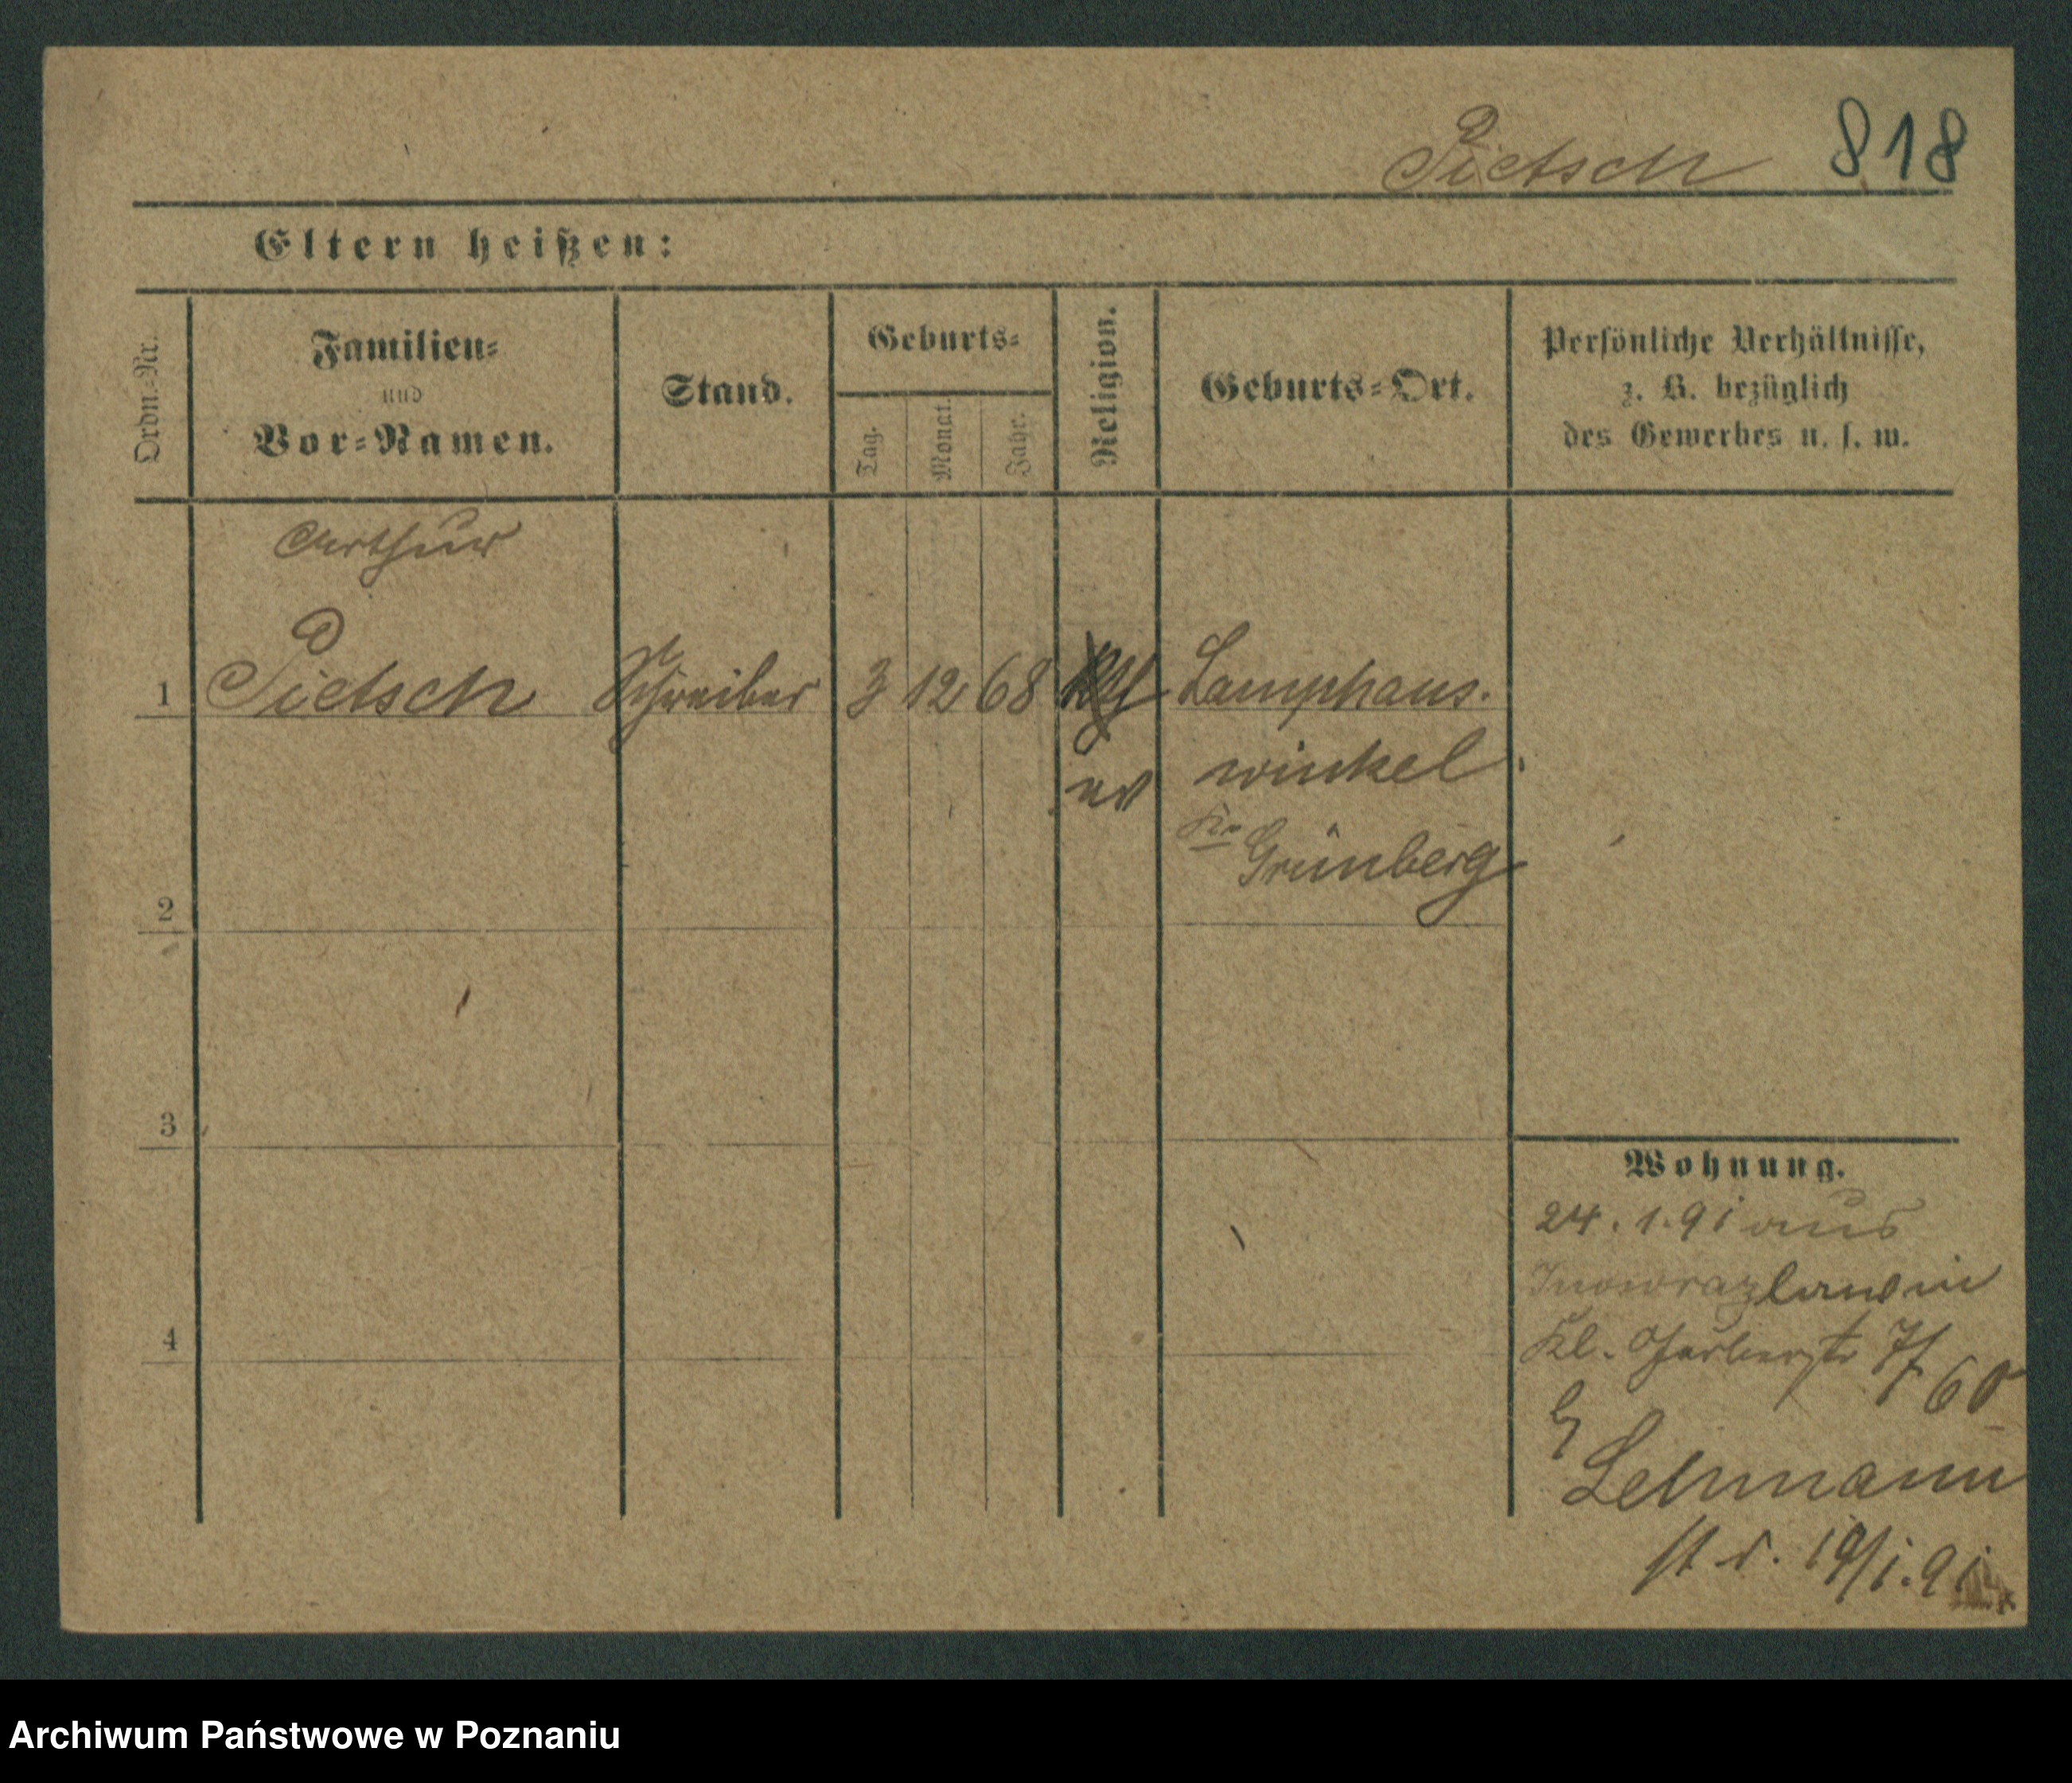 Pietsch 818
Eltern heißen:
Ordn.-Nr.
Familien-
und
Vor-Namen.
Stand.
Geburts-
Tag.
Monat.
Jahr.
Religion.
Geburts-Ort.
Persönliche Verhältnisse,
z. B. bezüglich
des Gewerbes u. s. w.
Arthur
1 Pietsch Schreiber 3 12 68 Lamphaus.
ev winkel
Kr Grünberg
2
3
4
Wohnung.
24. 1. 91 aus
Inowrazlaw in
Kl. Gerberstr 7
Lehmann
19/1. 91
Archiwum Państwowe w Poznaniu